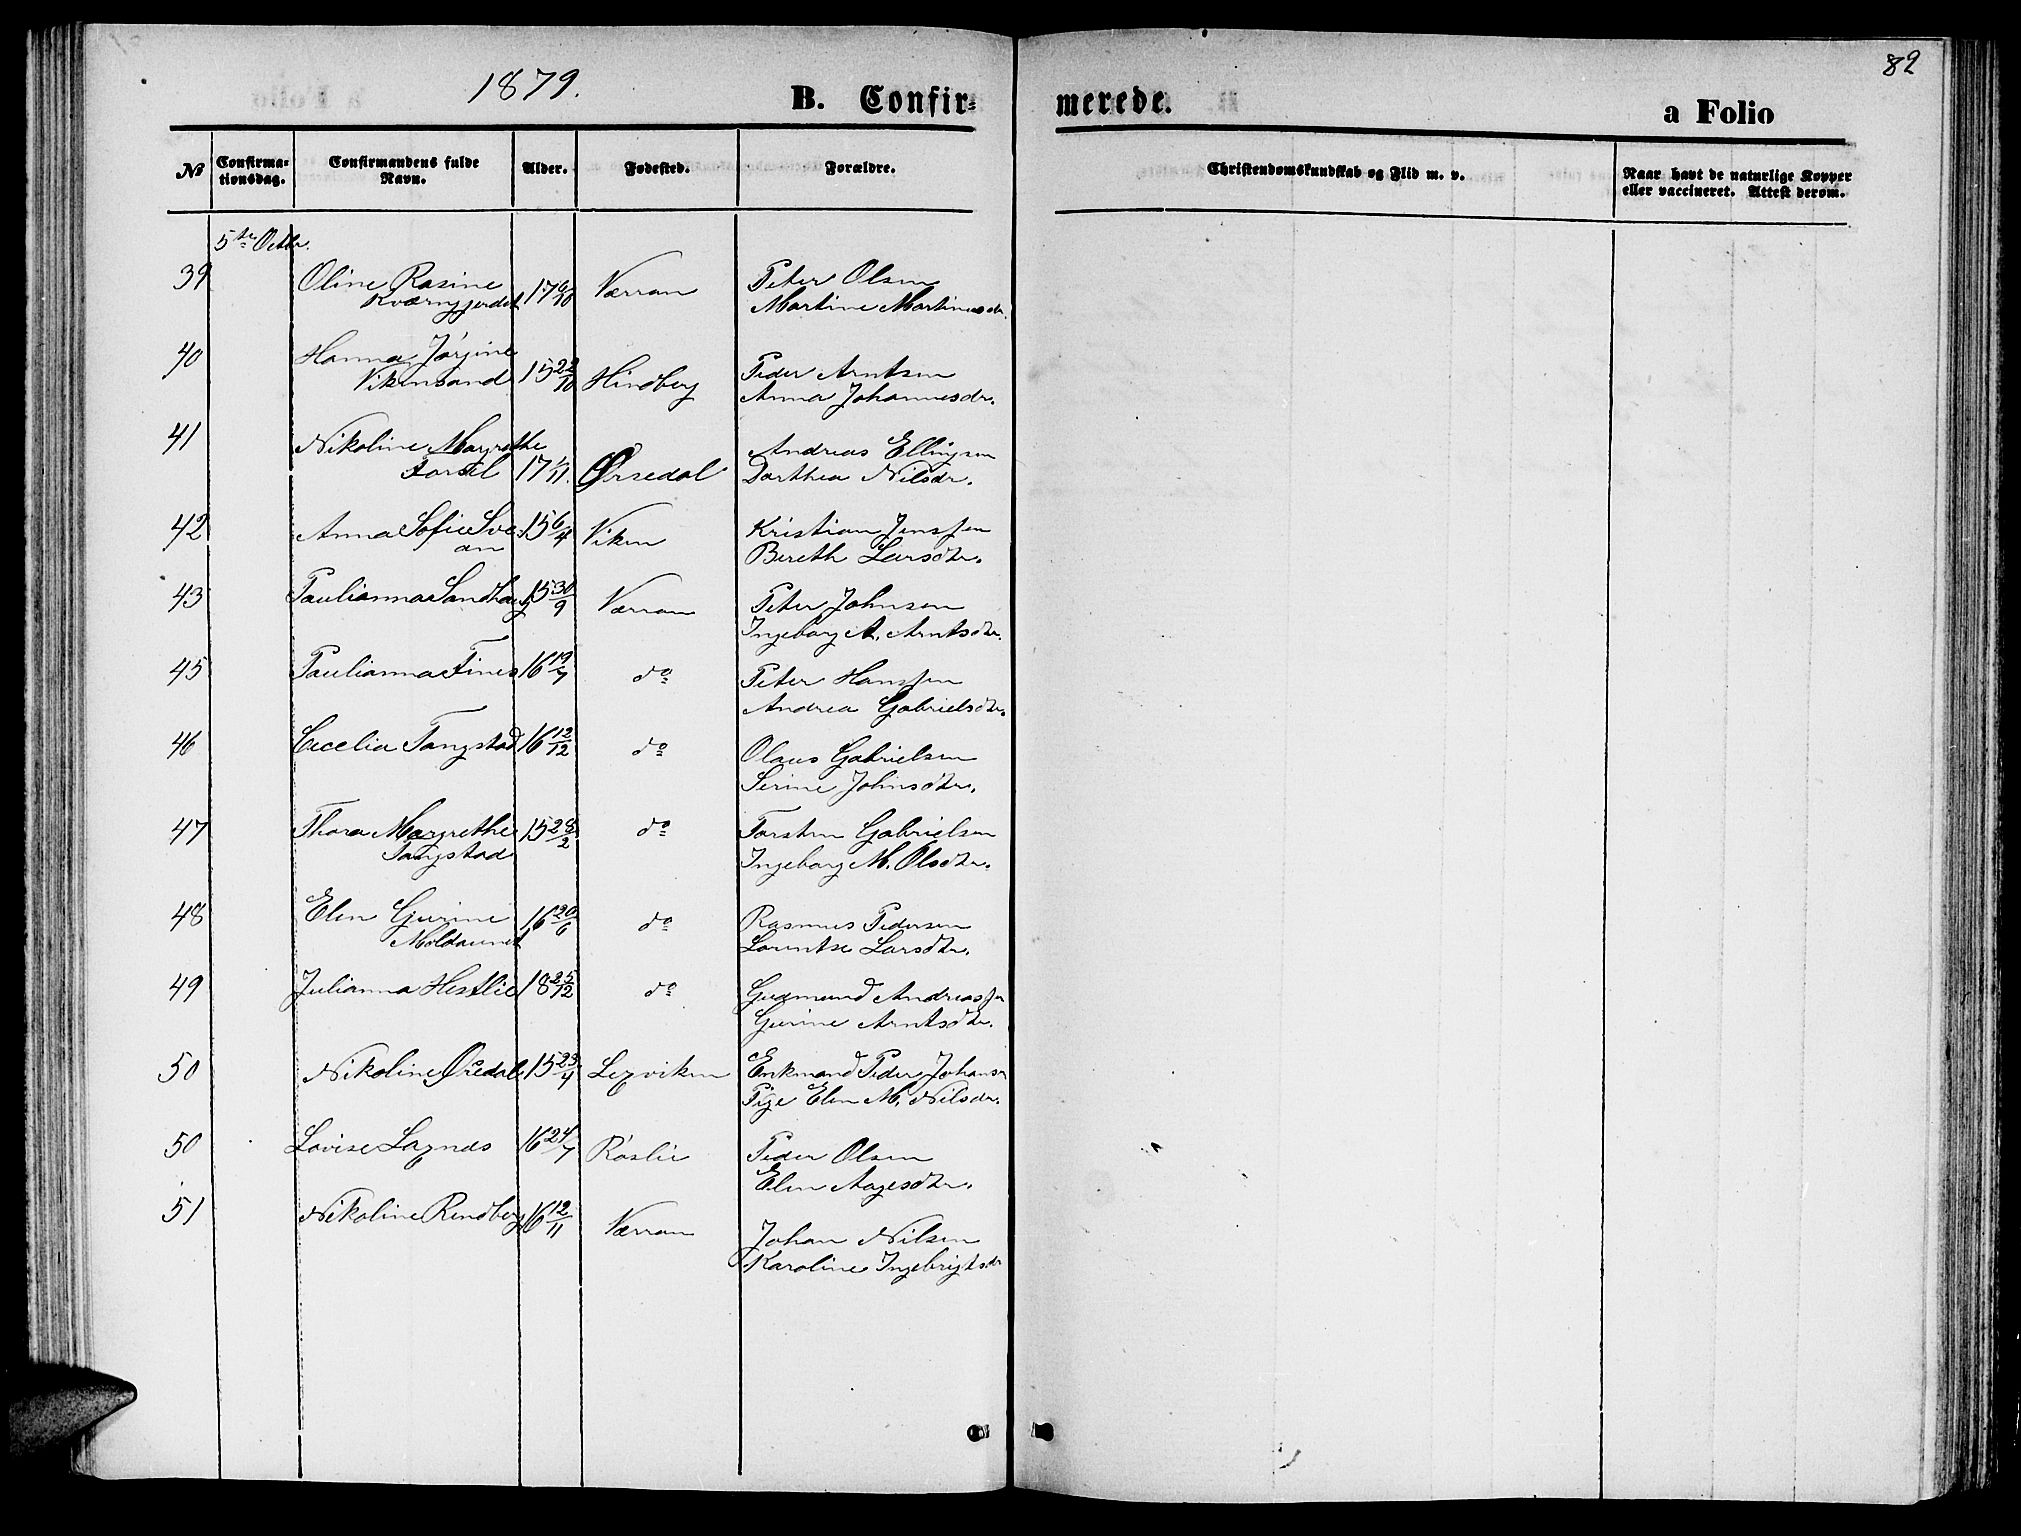 82
1879.
B. Confir-
merede.
a Folio
№
Confirma-
tionsdag.
Confirmandens fulde
Navn.
Alder.
Fødested.
Forældre.
Christendomskundskab og Flid m. v.
Naar havt de naturlige Kopper
eller vaccineret. Attest derom.
5te Octbr.
39 Oline Rasine 17 9/10 Værran Peter Olsen
Kværngjerdet Martine Martinusdr.
40 Hanna Jørgine 15 22/10 Hindberg Peder Arntsen
Vikensand Anna Johannesdr.
41 Nikoline Margrethe 17 1/11. Ørsedal Andreas Ellingsen
Dorthea Nilsdr.
42 Anna Sofie Sve 15 6/4 Viken Kristian Jenssen
an Bereth Larsdtr.
43 Paulianna Sandhaug 15 30/9 Værran Peter Johnsen
Ingeborg A. Arntsdtr.
45 Paulianna Fines 16 19/7 do Peter Hanssen
Andrea Gabrielsdtr.
46 Cecelia Tangstad 16 12/12 do Olaus Gabrielsen
Serine Johnsdtr.
47 Thora Margrethe 15 28/2 do Torsten Gabrielsen
Tangstad Ingeborg M. Olsdtr.
48 Elen Gurine 16 20/6 do Rasmus Pedersen
Moldaunet Lorentse Larsdtr.
49 Julianna Hestlie 18 25/12 do Gudmund Andreassen
Gurine Arntsdtr.
50 Nikoline Øredal 15 23/4 Lexviken Enkmand Peder Johans
Pige Elen M. Nilsdr.
50 Lovise Lagnes 16 24/7 Røslie Peder Olsen
Elen Aagesdtr.
51 Nikoline Rendberg 16 12/11 Værran Johan Nilsen
Karoline Ingebrigtsdr